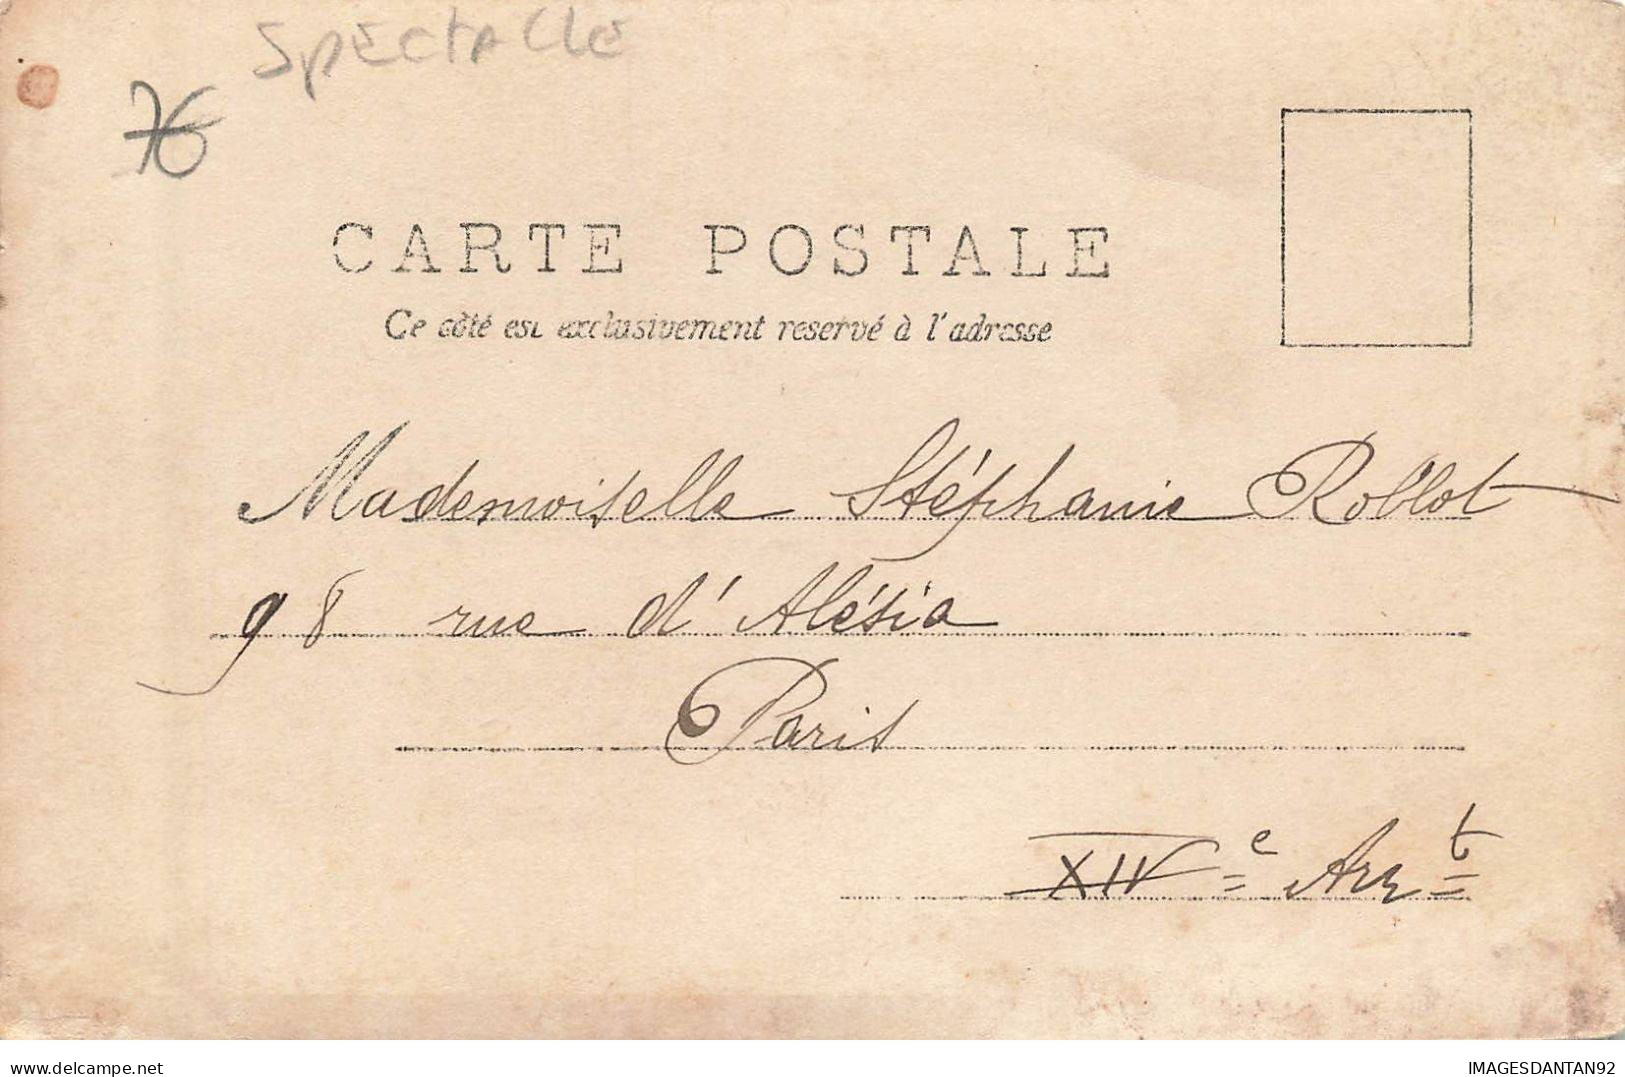 SPECtACLE
76
CARTE POSTALE
Ce côté est exclusivement reservé à l'adresse
Mademoiselle Stéphanie Roblot
98 rue d'Alésia
Paris
XIVe Arrt
IMAGESDANTAN92